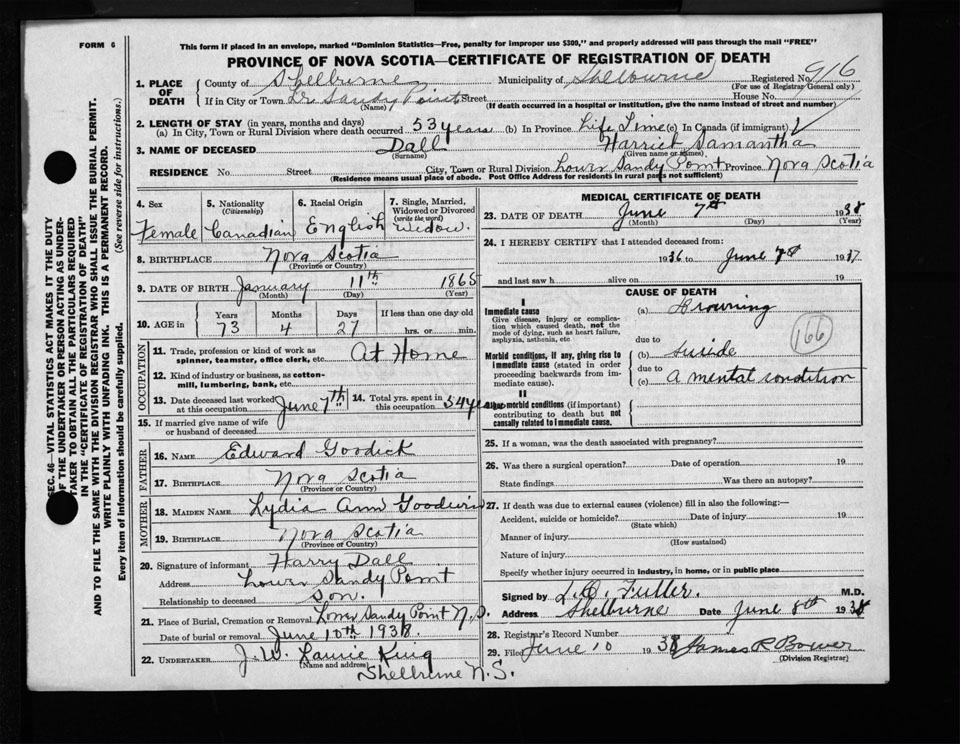 FORM 6
This form if placed in an envelope, marked "Dominion Statistics—Free, penalty for improper use $300," and properly addressed will pass through the mail "FREE"
PROVINCE OF NOVA SCOTIA—CERTIFICATE OF REGISTRATION OF DEATH
1. PLACE OF DEATH
County of Shelburne Municipality of Shelbourne Registered No. 916
(For use of Registrar General only)
If in City or Town Lr. Sandy Point Street House No.
(Name) (If death occurred in a hospital or institution, give the name instead of street and number)
2. LENGTH OF STAY (in years, months and days)
(a) In City, Town or Rural Division where death occurred 53 years (b) In Province Life Time (c) In Canada (if immigrant)
3. NAME OF DECEASED Dall Harriet Samantha
(Surname) (Given name or names)
RESIDENCE No. Street City, Town or Rural Division Lower Sandy Point Province Nova Scotia
(Residence means usual place of abode. Post Office Address for residents in rural parts not sufficient)
SEC. 46—VITAL STATISTICS ACT MAKES IT THE DUTY
OF THE UNDERTAKER OR PERSON ACTING AS UNDER-
TAKER TO OBTAIN ALL THE PARTICULARS REQUIRED
IN THE "CERTIFICATE OF REGISTRATION OF DEATH"
AND TO FILE THE SAME WITH THE DIVISION REGISTRAR WHO SHALL ISSUE THE BURIAL PERMIT.
WRITE PLAINLY WITH UNFADING INK. THIS IS A PERMANENT RECORD.
Every item of information should be carefully supplied. (See reverse side for instructions.)
4. Sex
Female
5. Nationality
(Citizenship)
Canadian
6. Racial Origin
English
7. Single, Married,
Widowed or Divorced
(write the word)
Widow.
8. BIRTHPLACE Nova Scotia
(Province or Country)
9. DATE OF BIRTH January 11th 1865
(Month) (Day) (Year)
10. AGE in Years Months Days If less than one day old
73 4 27 hrs. or min.
OCCUPATION
11. Trade, profession or kind of work as
spinner, teamster, office clerk, etc. At Home
12. Kind of industry or business, as cotton-
mill, lumbering, bank, etc.
13. Date deceased last worked
at this occupation June 7th
14. Total yrs. spent in
this occupation 54 years
15. If married give name of wife
or husband of deceased
FATHER
16. Name Edward Goodick
17. Birthplace Nova Scotia
(Province or Country)
MOTHER
18. Maiden Name Lydia Ann Goodwin
19. Birthplace Nova Scotia
(Province or Country)
20. Signature of informant Harry Dall
Address Lower Sandy Point
Relationship to deceased son.
21. Place of Burial, Cremation or Removal Lower Sandy Point N.S.
Date of burial or removal June 10th 1938.
22. UNDERTAKER J. W. Laurie King
(Name and address)
Shelburne N.S.
MEDICAL CERTIFICATE OF DEATH
23. DATE OF DEATH June 7th 1938
(Month) (Day) (Year)
24. I HEREBY CERTIFY that I attended deceased from:
1936 to June 7th 1937
and last saw h alive on 19
CAUSE OF DEATH
I
Immediate cause
Give disease, injury or complica-
tion which caused death, not the
mode of dying, such as heart failure,
asphyxia, asthenia, etc
(a) Drowning
due to
166
Morbid conditions, if any, giving rise to
immediate cause (stated in order
proceeding backwards from im-
mediate cause).
(b) suicide
due to
(c) A mental condition
II
Other morbid conditions (if important)
contributing to death but not
causally related to immediate cause.
25. If a woman, was the death associated with pregnancy?
26. Was there a surgical operation? Date of operation 19
State findings Was there an autopsy?
27. If death was due to external causes (violence) fill in also the following:—
Accident, suicide or homicide? Date of injury 19
(State which)
Manner of injury
(How sustained)
Nature of injury
Specify whether injury occurred in industry, in home, or in public place
Signed by L. O. Fuller. M.D.
Address Shelburne Date June 8th 1938
28. Registrar's Record Number
29. Filed June 10 1938 James R Bower
(Division Registrar)